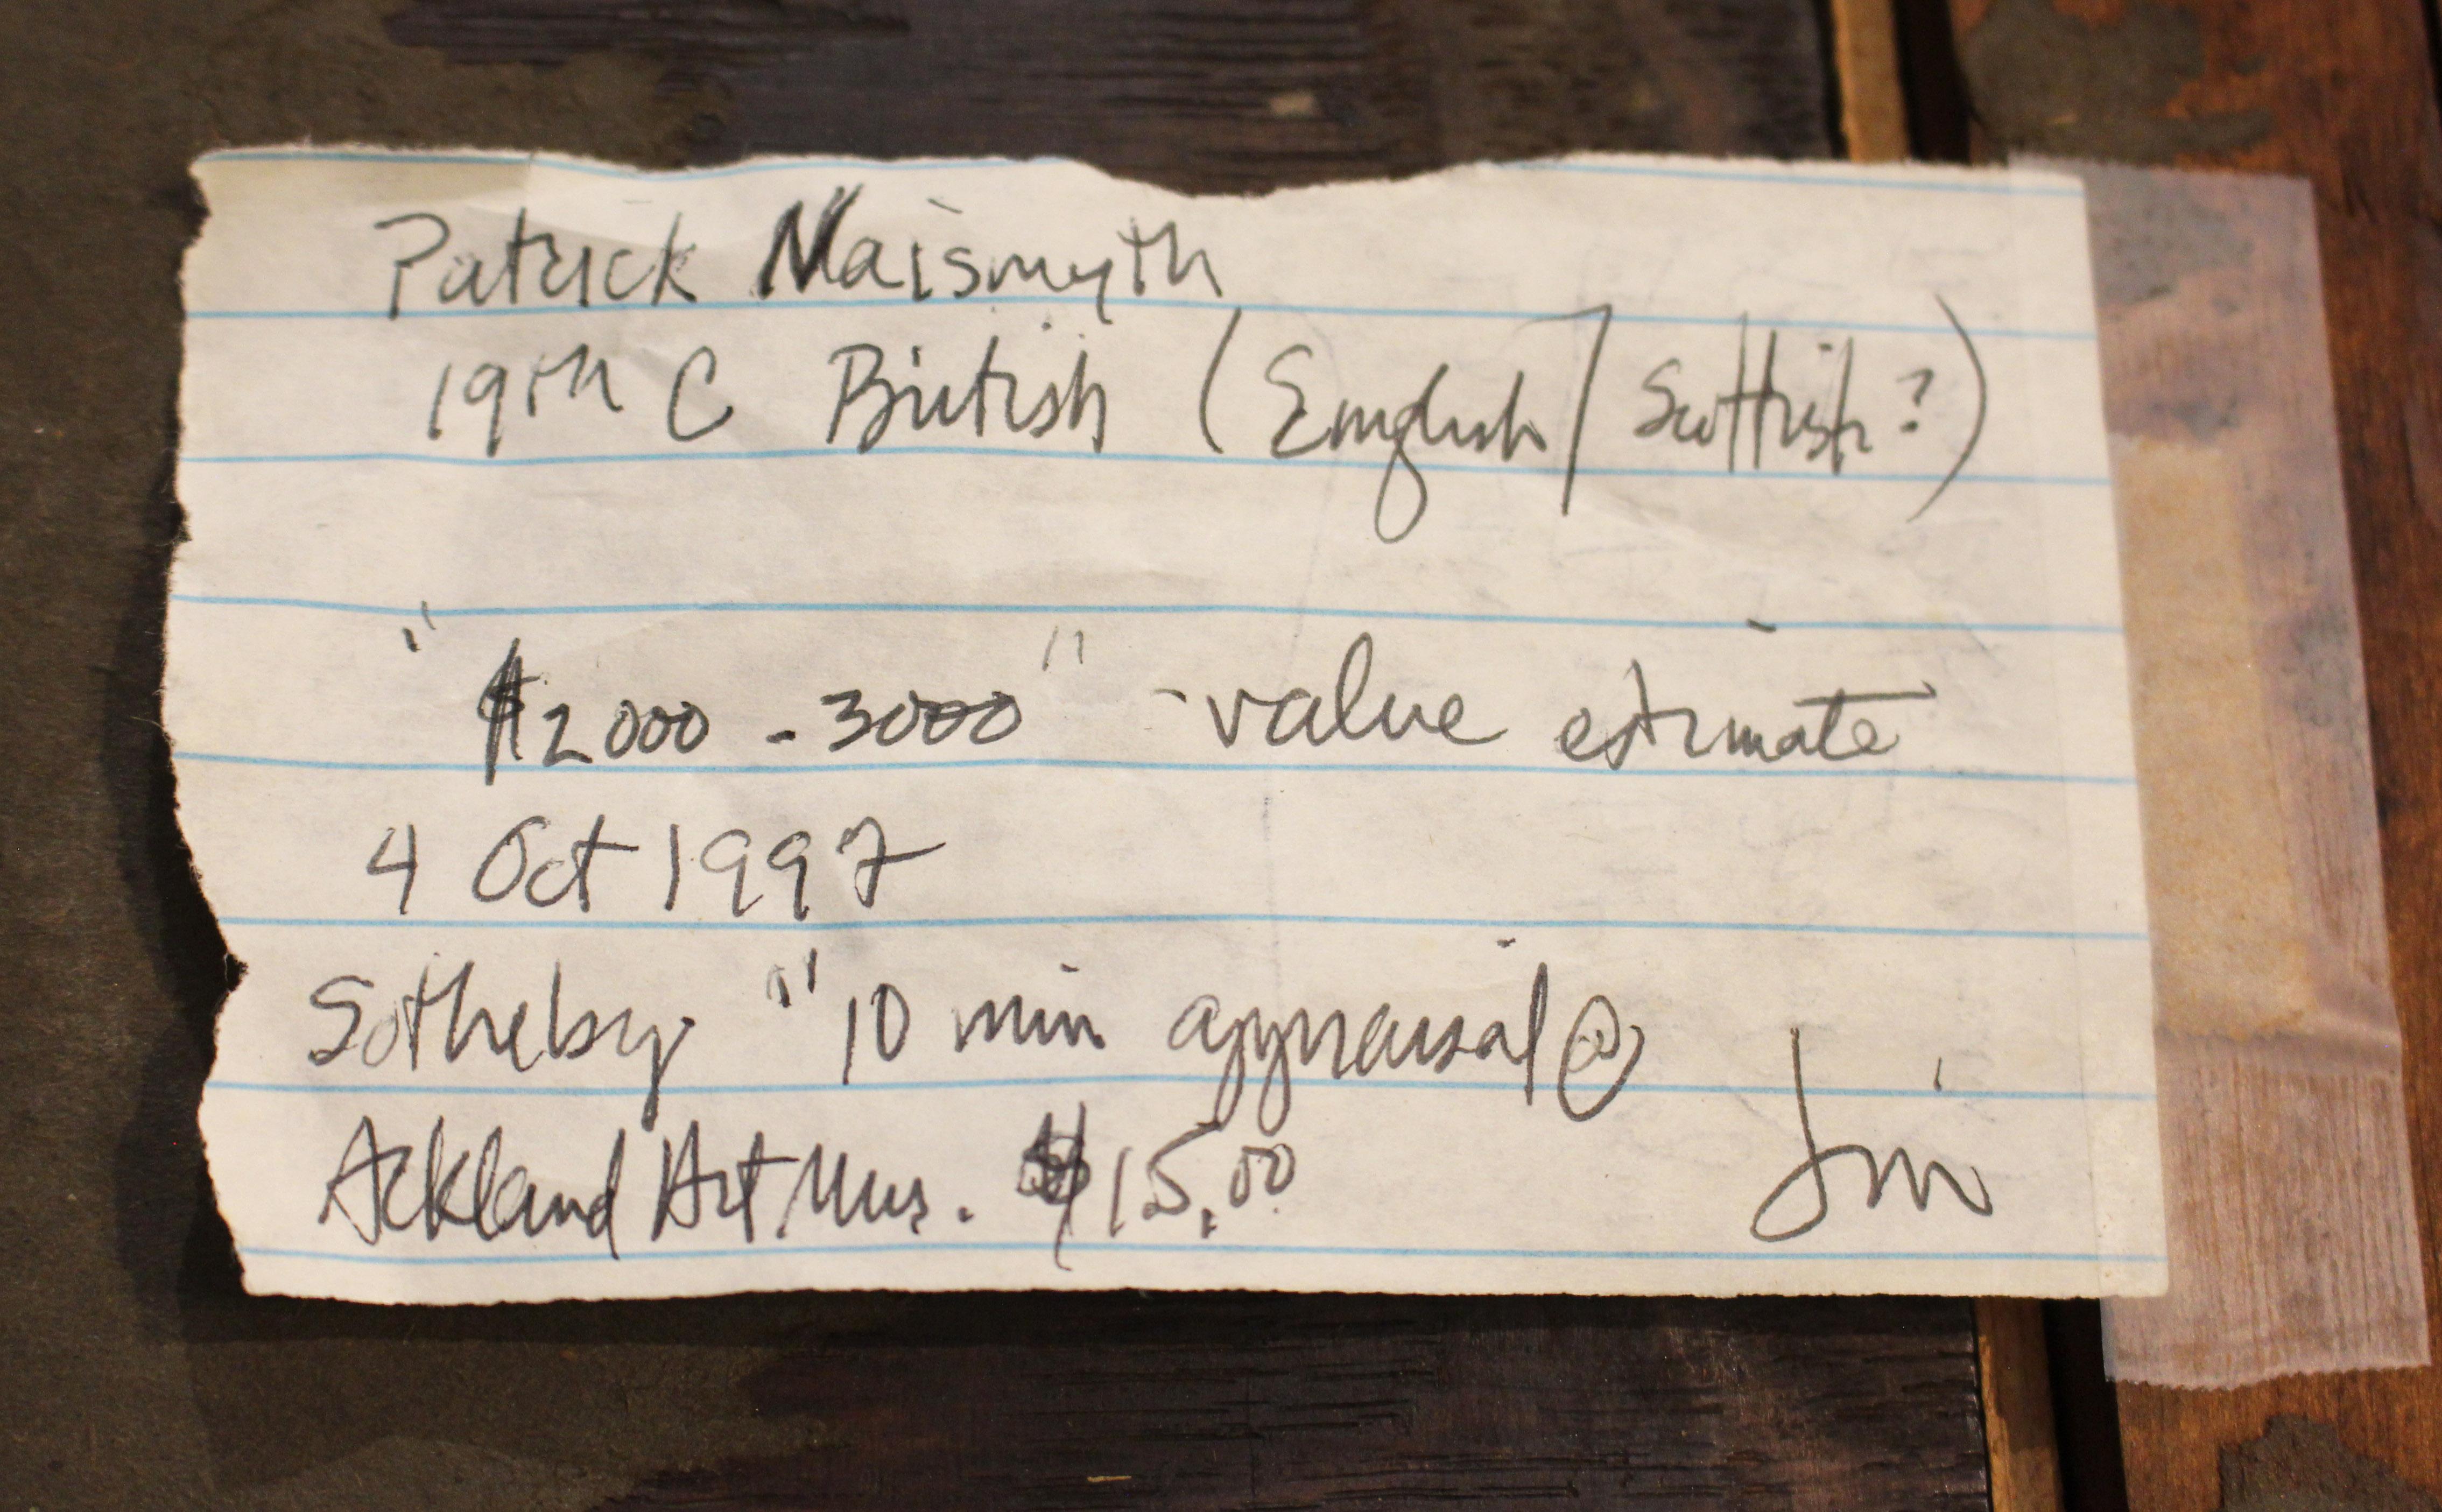 Patrick Naismyth
19th C British (English/Scottish?)
"$2000 - 3000" - value estimate
4 Oct 1997
Sotheby " 10 min appraisal @
Ackland Art Mus. $15.00
Jim